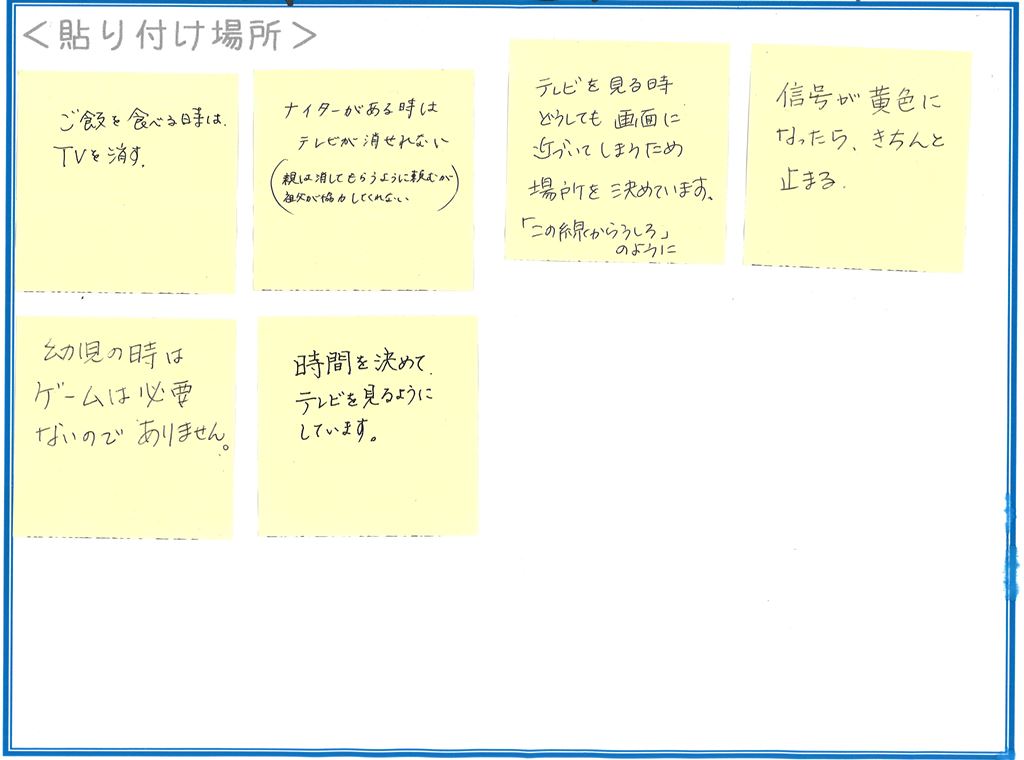 ＜貼り付け場所＞
ご飯を食べる時は、
TVを消す。
ナイターがある時は
テレビが消せれない
(親は消してもらうように頼むが
祖父が協力してくれない。)
テレビを見る時
どうしても画面に
近づいてしまうため
場所を決めています。
「この線からうしろ」
のように
信号が黄色に
なったら、きちんと
止まる。
幼児の時は
ゲームは必要
ないのでありません。
時間を決めて、
テレビを見るように
しています。